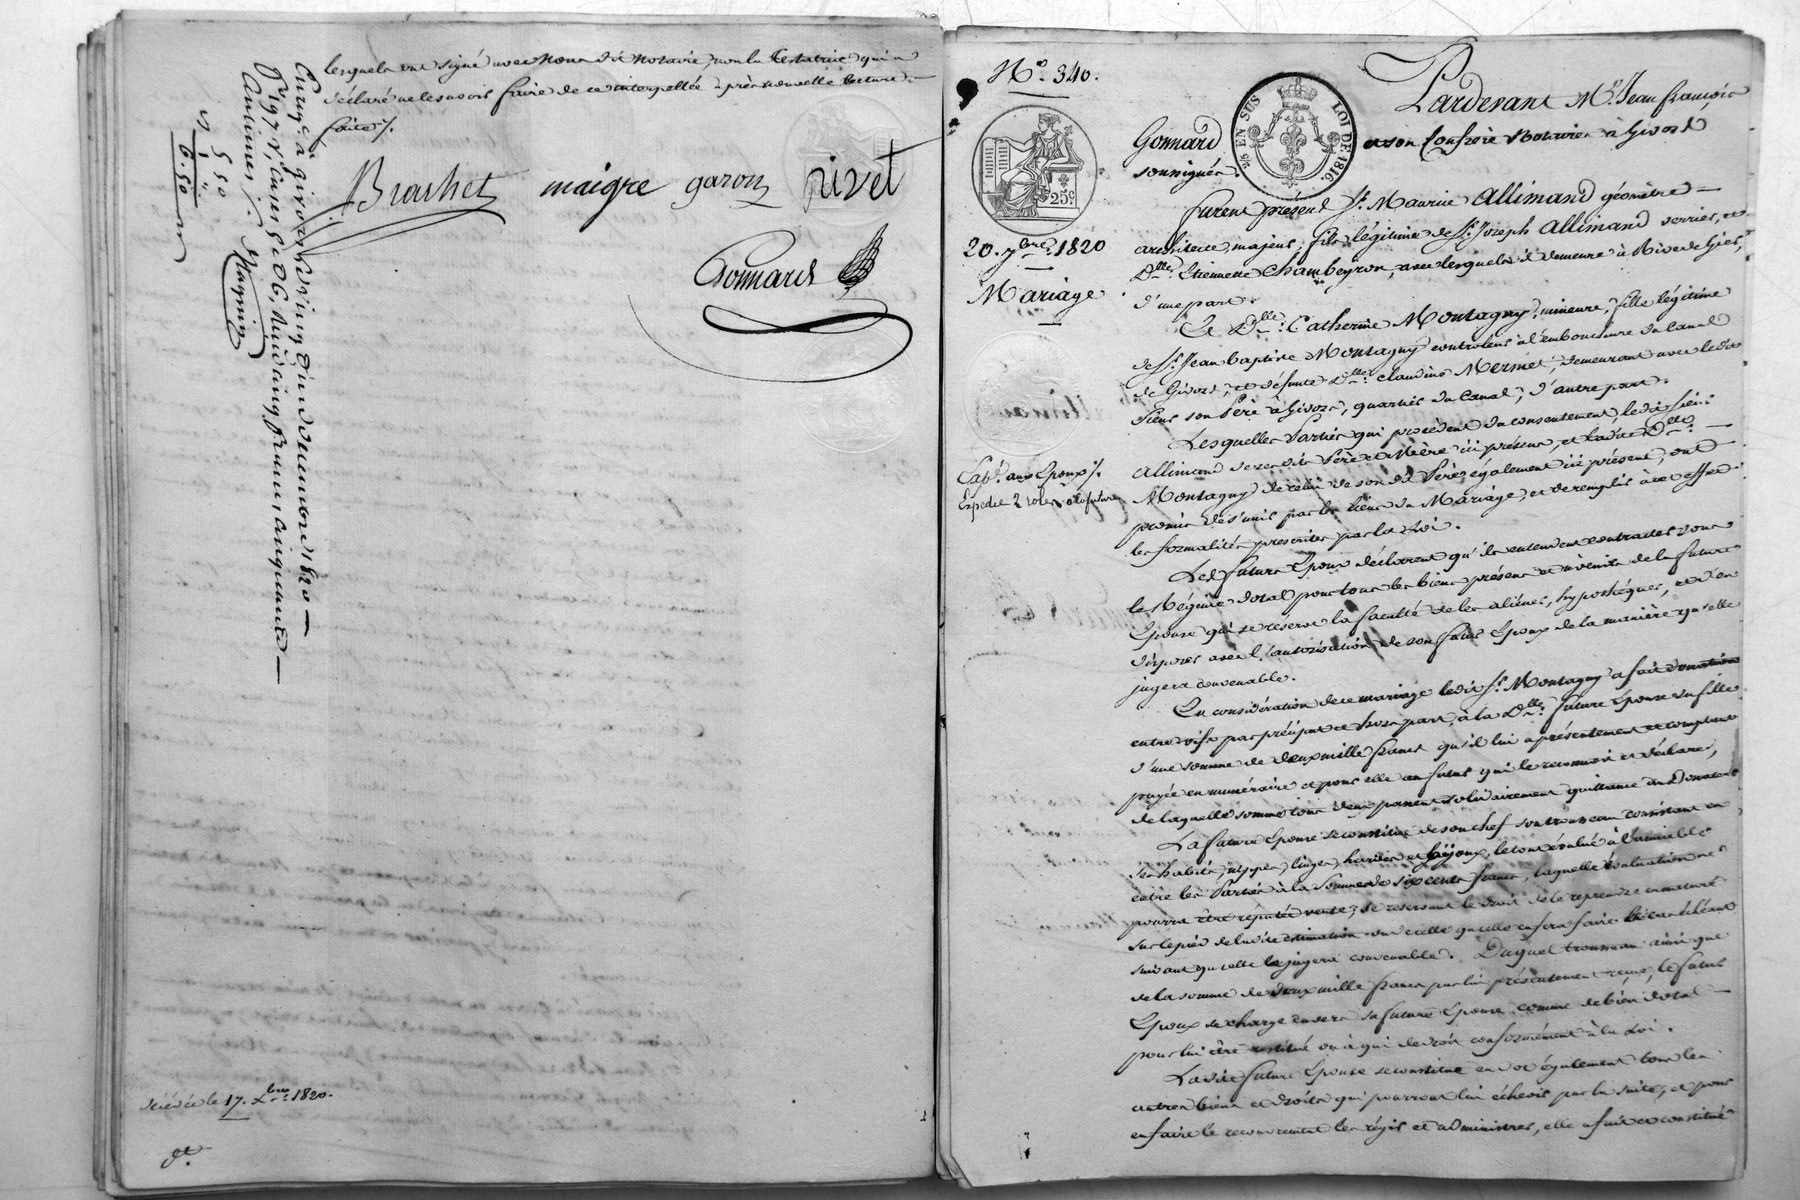 lesquels ont signé avec Nous dit Notaire, non la testatrice qui a
déclaré ne le savoir faire de ce interpellée après nouvelle lecture
faite ./.
Brachet maigre garon rivet
Gonnard
Enreg.é à givors le vingt décembre 1820
cinq francs cinquante
centimes ./.
5 50
6.50
décédée le 17. Xbre 1820.
N.° 340.
25 EN SUS
LOI DE 1816
25c
20. 7bre 1820
Mariage
Exp.é aux Epoux ./.
Expédié 2 roles a la future
Pardevant M.e Jean françois
Gonnard et son Confrère Notaires à Givors
soussignés
furent présens S.r Maurice Allimand géomètre
architecte, majeur, fils légitime de S.r Joseph Allimand verrier, et
D.lle Etiennette Chambeyron, avec lesquels il demeure à Rive de Gier,
d'une part.
Et D.lle Catherine Montagny, mineure, fille légitime
de S.r Jean baptiste Montagny controleur à l'embouchure du Canal
de Givors, et défunte D.lle Claudine Mermet, demeurant avec ledit
Sieur son Père à Givors, quartier du Canal, d'autre part.
Lesquelles Parties qui procèdent du consentement, ledit Sieur
Allimand de ses dits Père et Mère ici présens, et ladite D.lle
Montagny de celui de son dit Père également ici présent, ont
promis de s'unir par les liens du Mariage, et de remplir à cet effet
les formalités prescrites par la Loi.
Les futurs Epoux déclarent qu'ils entendent contracter sous
le Régime dotal pour tous les biens présens et à venir de la future
Epouse qui se réserve la faculté de les aliéner, hypothéquer, et d'en
disposer avec l'autorisation de son futur Epoux de la manière qu'elle
jugera convenable.
En considération de ce mariage ledit S.r Montagny a fait donation
entre vifs par préciput et hors part, à la D.lle future Epouse sa fille
d'une somme de deux mille francs qu'il lui a présentement et comptant
payée en numéraire et pour elle au futur qui le reconnait et déclare,
de laquelle somme tous deux passent solidairement quittance au Donateur
La future Epouse se constitue de son chef son trousseau consistant en
ses habits, nippes, linges, hardes et bijoux, le tout évalué à l'amiable
entre les Parties à la somme de six cents francs, laquelle évaluation ne
pourra être réputée vente; se réservant le droit de le reprendre en nature
sur le pied de ladite estimation ou celle qu'elle en fera faire le cas échéant
suivant qu'elle le jugera convenable. Duquel trousseau ainsi que
de la somme de deux mille francs par lui présentement reçue, le futur
Epoux se charge envers sa future Epouse comme de bien dotal
pour lui être restitué ou à qui de droit conformément à la Loi.
Ladite future Epouse se constitue en dot également tous les
autres biens et droits qui pourront lui échoir par la suite, et pour
en faire le recouvrement les régir et administrer, elle a fait et constitué